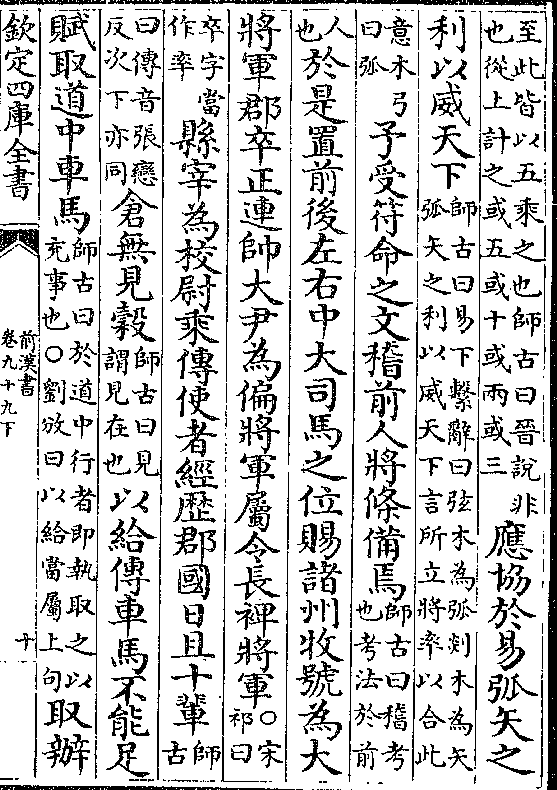 至此皆以五乘之也師古曰晉說非
也從上計之或五或十或兩或三
應協於易弧矢之
利以威天下
師古曰易下繫辭曰弦木為弧剡木為矢
弧矢之利以威天下言所立將率以合此
意木弓
曰弧
子受符命之文稽前人將條備焉
師古曰稽考
也考法於前
人
也
於是置前後左右中大司馬之位賜諸州牧號為大
將軍郡卒正連帥大尹為偏將軍屬令長裨將軍
○宋
祁曰
卒字當
作率
縣宰為校尉乘傳使者經歷郡國日且十輩
師
古
曰傳音張戀
反次下亦同
倉無見穀
師古曰見
謂見在也
以給傳車馬不能足
賦取道中車馬
師古曰於道中行者即執取之以
充事也○劉攽曰以給當屬上句
取辦
欽定四庫全書
前漢書
卷九十九下
十